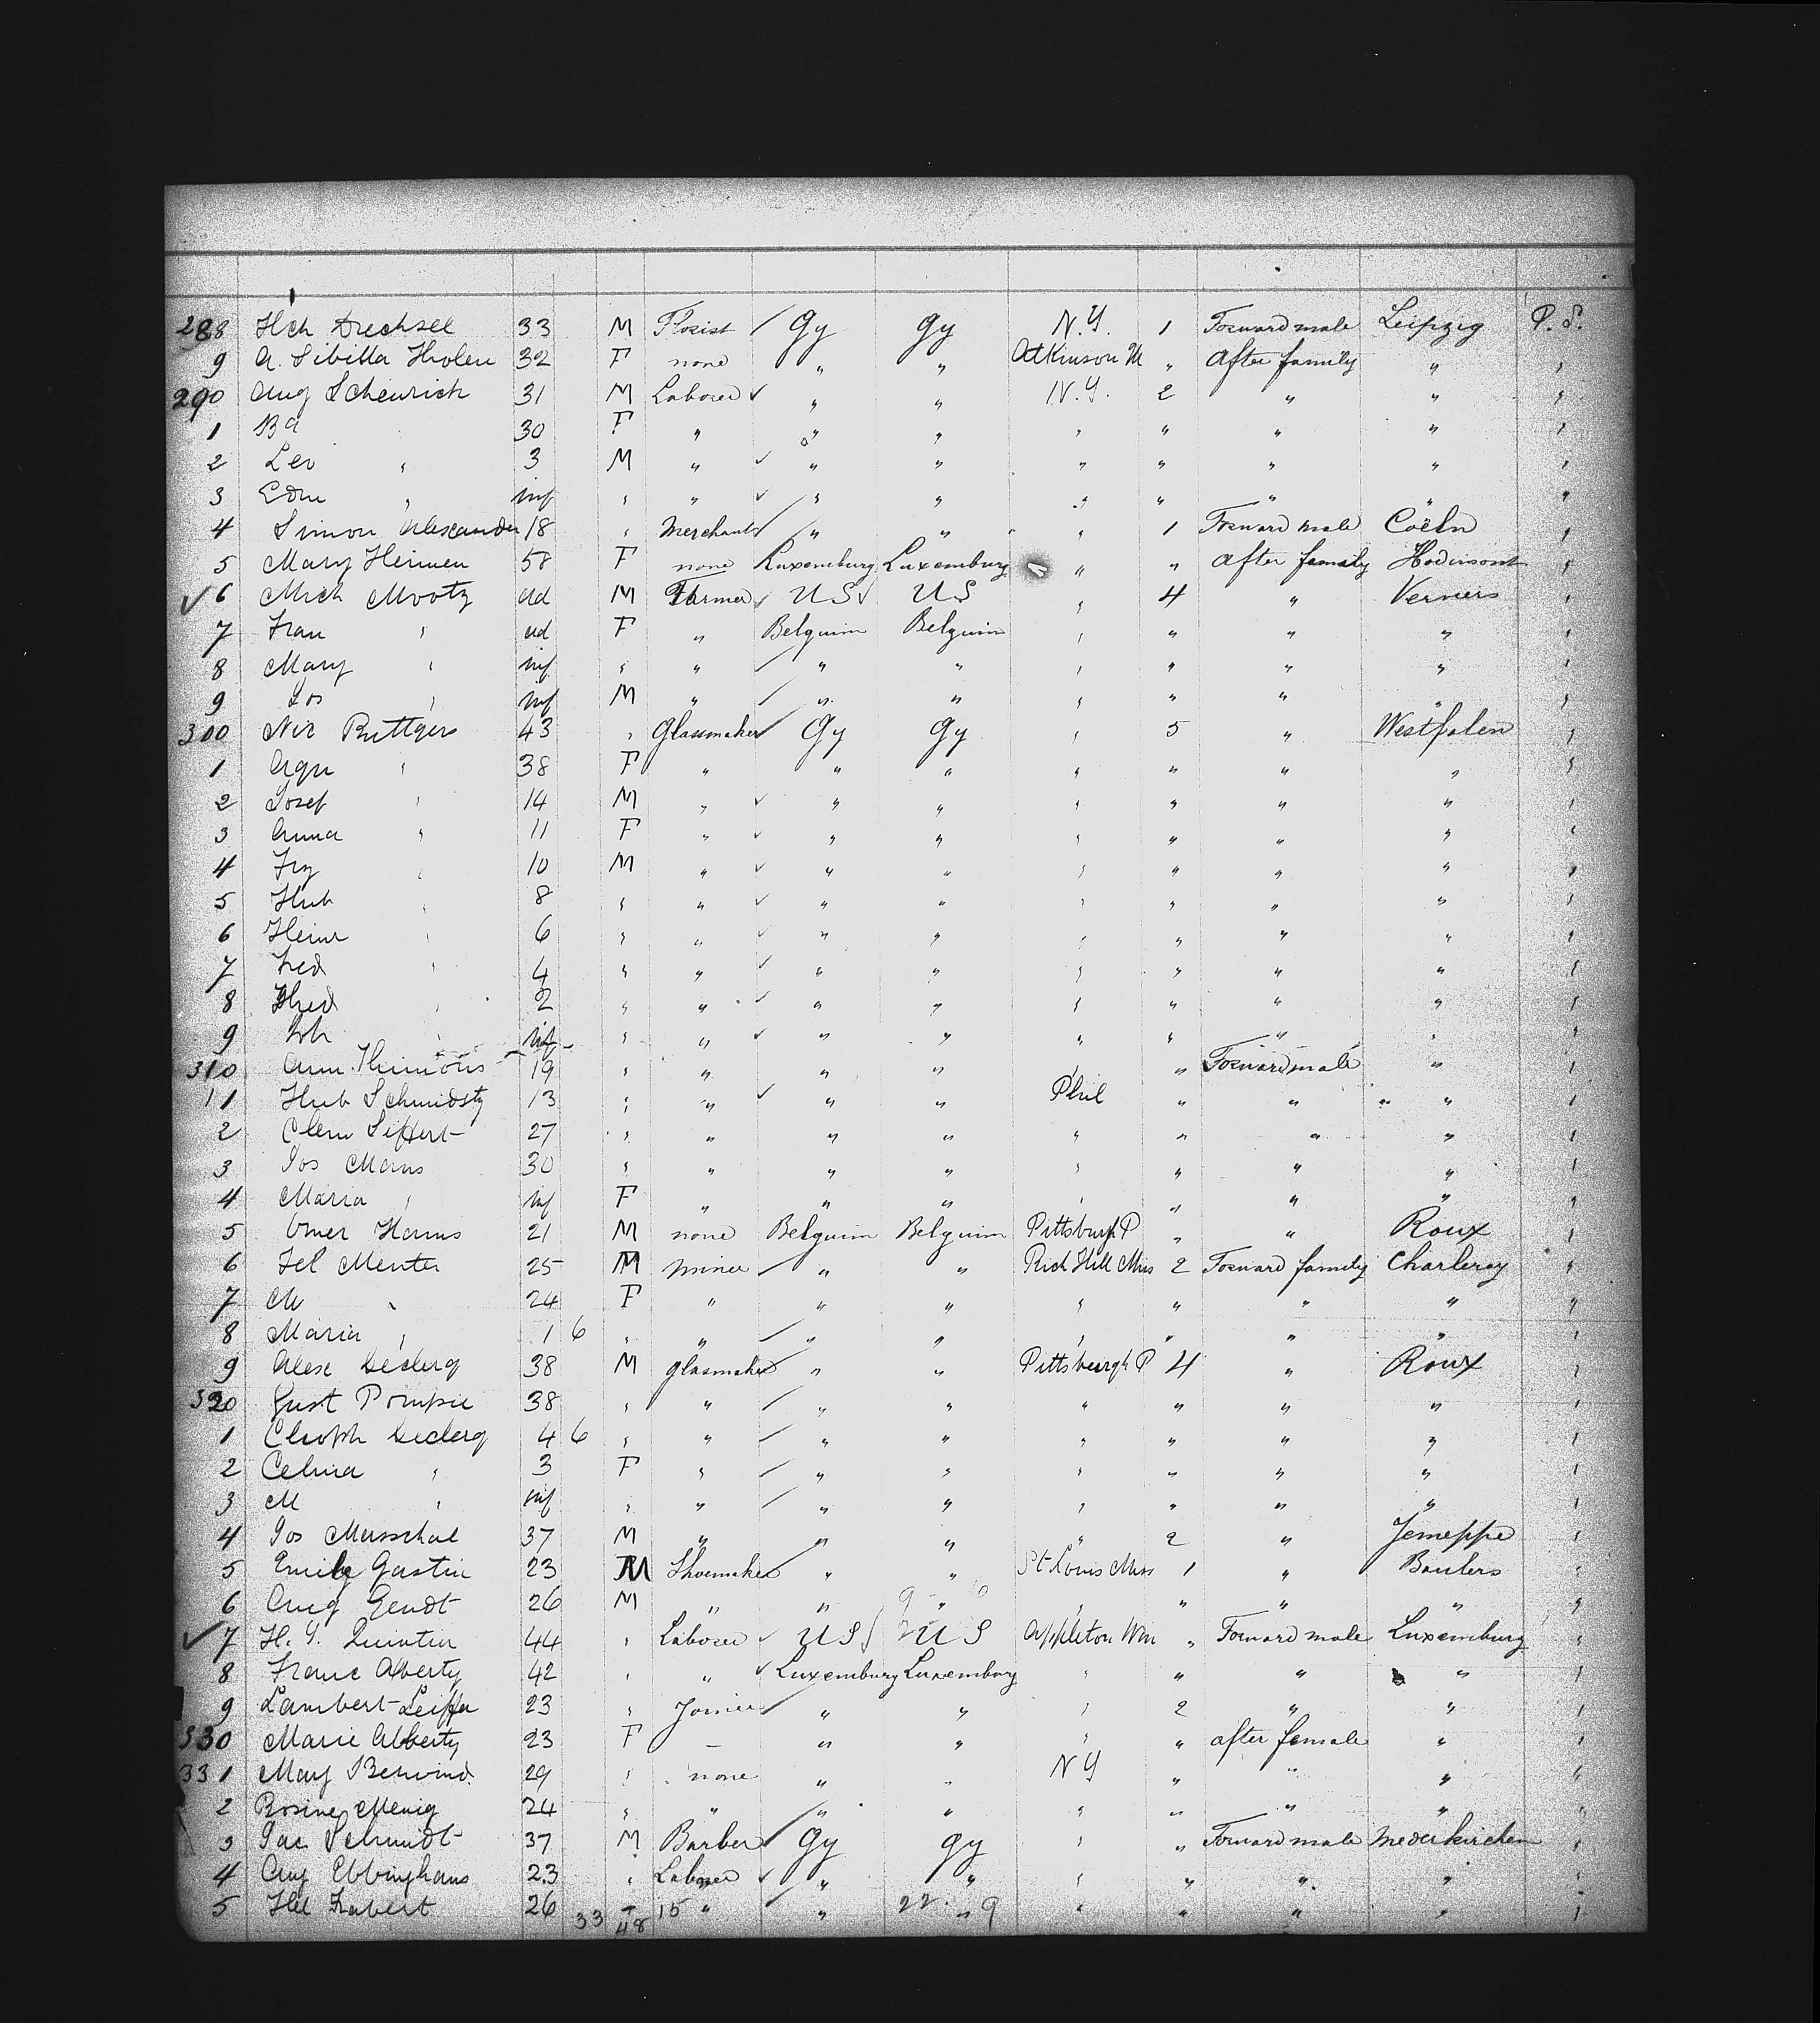 288 Hch Drechsel 33 M Florist / Gy Gy N.Y. 1 Forward male Leipzig P. S.
9 A. Sibilla Holen 32 F none " " Atkinson " After family " "
290 Aug Scheurich 31 M Laborer ✓ " " N.Y. 2 " " "
1 Ba 30 F " " " " " " " "
2 Leo " 3 M " ✓ " " " " " " "
3 Edm " inf " " ✓ " " " " " " "
4 Simon Alexander 18 " Merchant / " " " 1 Forward male Coëln "
5 Mary Heinen 58 F none Luxemburg Luxemburg " " After family Hodimont "
✓ 6 Mich Mootz ad M Farmer ✓ US ✓ US " 4 " Verviers "
7 Fran " ad F " Belguim Belguim " " " " "
8 Mary " inf " " / " " " " " " "
9 Jos " inf M " / " " " " " " "
300 Nic Buttgers 43 " Glassmaker / Gy Gy " 5 " Westfalen "
1 Agn " 38 F " " " " " " " "
2 Josef " 14 M " ✓ " " " " " " "
3 Anna " 11 F " ✓ " " " " " " "
4 Frz " 10 M " ✓ " " " " " " "
5 Hub " 8 " " ✓ " " " " " " "
6 Heinr " 6 " " ✓ " " " " " " "
7 Fred " 4 " " ✓ " " " " " " "
8 2 " " ✓ " " " " " " "
9 Joh " inf " " ✓ " " " " " " "
310 Ann 19 " " " " " " Forward male " "
11 Hub Schmidtz 13 " " ✓ " " Phil " " " "
2 Clem Siffert 27 " " " " " " " " "
3 Jos Maus 30 " " " " " " " " "
4 Maria " inf F " " " " " " " "
5 Omer Harms 21 M none Belguim Belguim Pittsburgh P " " Roux "
6 Fel Menter 25 M Miner / " " Rich Hill Miss 2 Forward family Charleroy "
7 M " 24 F " " " " " " " "
8 Maria " 1 6 " " / " " " " " " "
9 Alex Declerq 38 M Glasmaker / " " Pittsburgh P 4 " Roux "
320 Gust Pompie 38 " " / " " " " " " "
1 Cleoph Declerq 4 6 " " / " " " " " " "
2 Celina " 3 F " / " " " " " " "
3 M " inf " " / " " " " " " "
4 Jos Marschal 37 M " " " " 2 " Jemeppe "
5 Emile Gastin 23 M Shoemaker / " " St Louis Miss 1 " "
6 Aug Gendt 26 M " " " " " " " "
✓ 7 H. J. Quintin 44 " Laborer ✓ US / US Appleton Win " Forward male Luxemburg "
8 Franc Alberty 42 " " ✓ Luxemburg Luxemburg " " " " "
9 Lambert Leiffer 23 " Joiner / " " " 2 " " "
330 Marie Alberty 23 F — " " " " after female " "
331 May 29 " none " " NY " " " "
2 Rosine Menig 24 " " / " " " " " " "
3 Jac Schmidt 37 M Barber / Gy Gy " " Forward male Niederkirchen "
4 Aug Ebbinghaus 23 " Laborer ✓ " " " " " " "
5 Hel 26 33 48 15 " / " 22 " 9 " " " " "